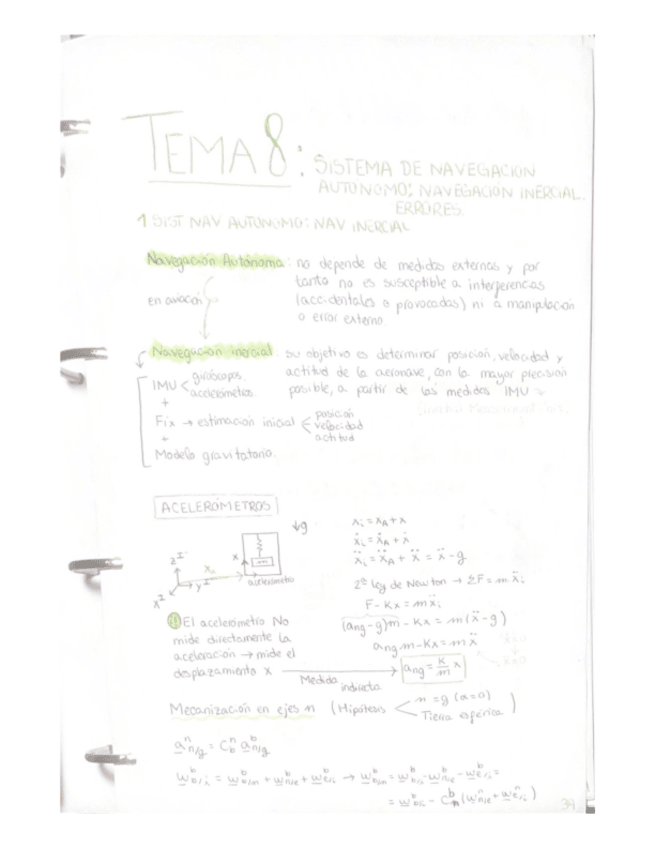 TEMA 8: SISTEMA DE NAVEGACIÓN
AUTÓNOMO: NAVEGACIÓN INERCIAL.
ERRORES.
1. SIST NAV AUTÓNOMO: NAV INERCIAL
Navegación Autónoma: no depende de medidas externas y por
tanto no es susceptible a interferencias
en aviación
(accidentales o provocadas) ni a manipulación
o error externo.
Navegación inercial: su objetivo es determinar posición, velocidad y
actitud de la aeronave, con la mayor precisión
posible, a partir de las medidas IMU
IMU < giróscopos. acelerómetros.
+
Fix → estimación inicial < posición velocidad actitud
+
Modelo gravitatorio.
ACELERÓMETROS
↓g
acelerómetro
x_i = x_A + x
ẋ_i = ẋ_A + ẋ
ẍ_i = ẍ_A + ẍ = ẍ - g
2ª ley de Newton → ΣF = m ẍ_i
F - Kx = m ẍ_i
(a_ng - g)m - Kx = m(ẍ - g)
a_ng m - Kx = m ẍ
El acelerómetro NO
mide directamente la
aceleración → mide el
desplazamiento x
Medida indirecta
a_ng = K/m x
Mecanización en ejes n (Hipótesis < n = g (α=0) Tierra esférica)
a^n_n/g = C^n_b a^b_n/g
w^b_b/i = w^b_b/n + w^b_n/e + w^b_e/i → w^b_b/n = w^b_b/i - w^b_n/e - w^b_e/i =
= w^b_b/i - C^b_n (w^n_n/e + w^n_e/i)
39